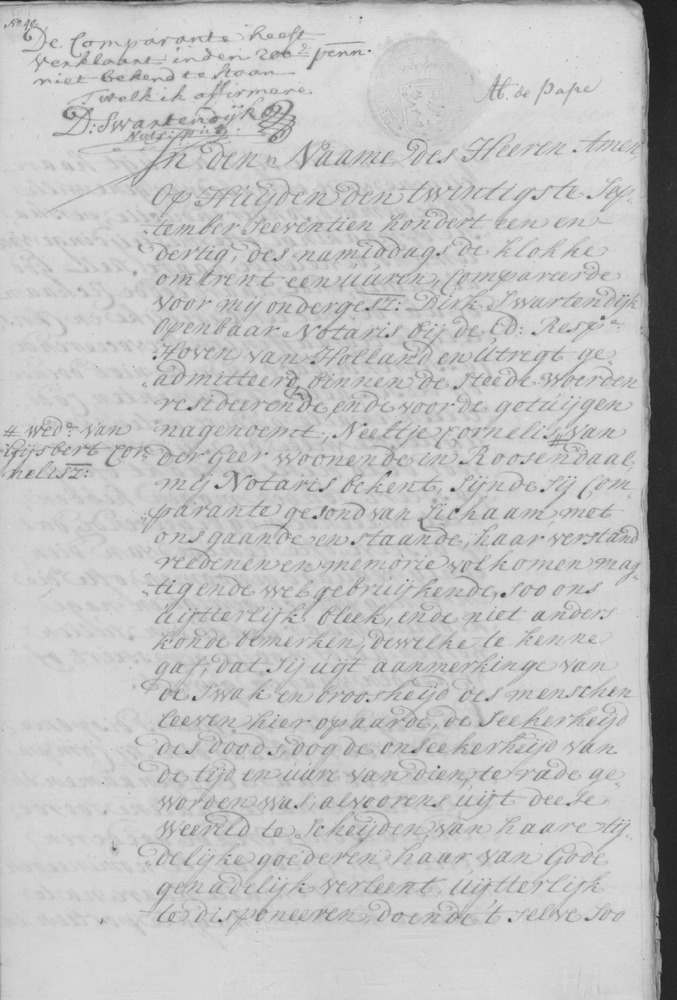 No. 49.
De Comparante heeft
verklaart in den 200e penn.
niet bekend te staan
't welk ik affirmere.
D: Swartendijk
Nots: pub:
Ab. de Pape
In den Naame des Heeren Amen
Op Huijden den twintigste Sep
tember Seeventien hondert een en
dertig, des namiddags de klokke
omtrent een uuren, Compareerde
voor mij ondergesz: Dirk Swartendijk
openbaar Notaris bij de Ed: Respe.
Hoven van Holland en Utregt ge
admitteerd, binnen de Steede Woerden
resideerende, ende voor de getuijgen
nagenoemt, Neeltje Cornelis # van
# wede. van
Gijsbert Cor
nelisz:
der Geer woonende in Roosendaal,
mij Notaris bekent, sijnde sij Com
parante gesond van Lichaam met
ons gaande en staande, haar verstand
reedenen en memorie volkomen mag
tig ende wel gebruijkende, soo ons
uijtterlijk bleek, ende niet anders
konde bemerken, dewelke te kenne
gaf, dat sij uijt aanmerkinge van
de swak en broosheijd des menschen
leeven hier op aarde, de seekerheijd
des doods, dog de onseekerheijd van
de tijd en uure van dien, te rade ge
worden was, alvoorens uijt deese
Weereld te scheijden, van haare tij
delijke goederen haar van Gode
genadelijk verleent, uijtterlijk
te disponeeren, doende 't selve soo